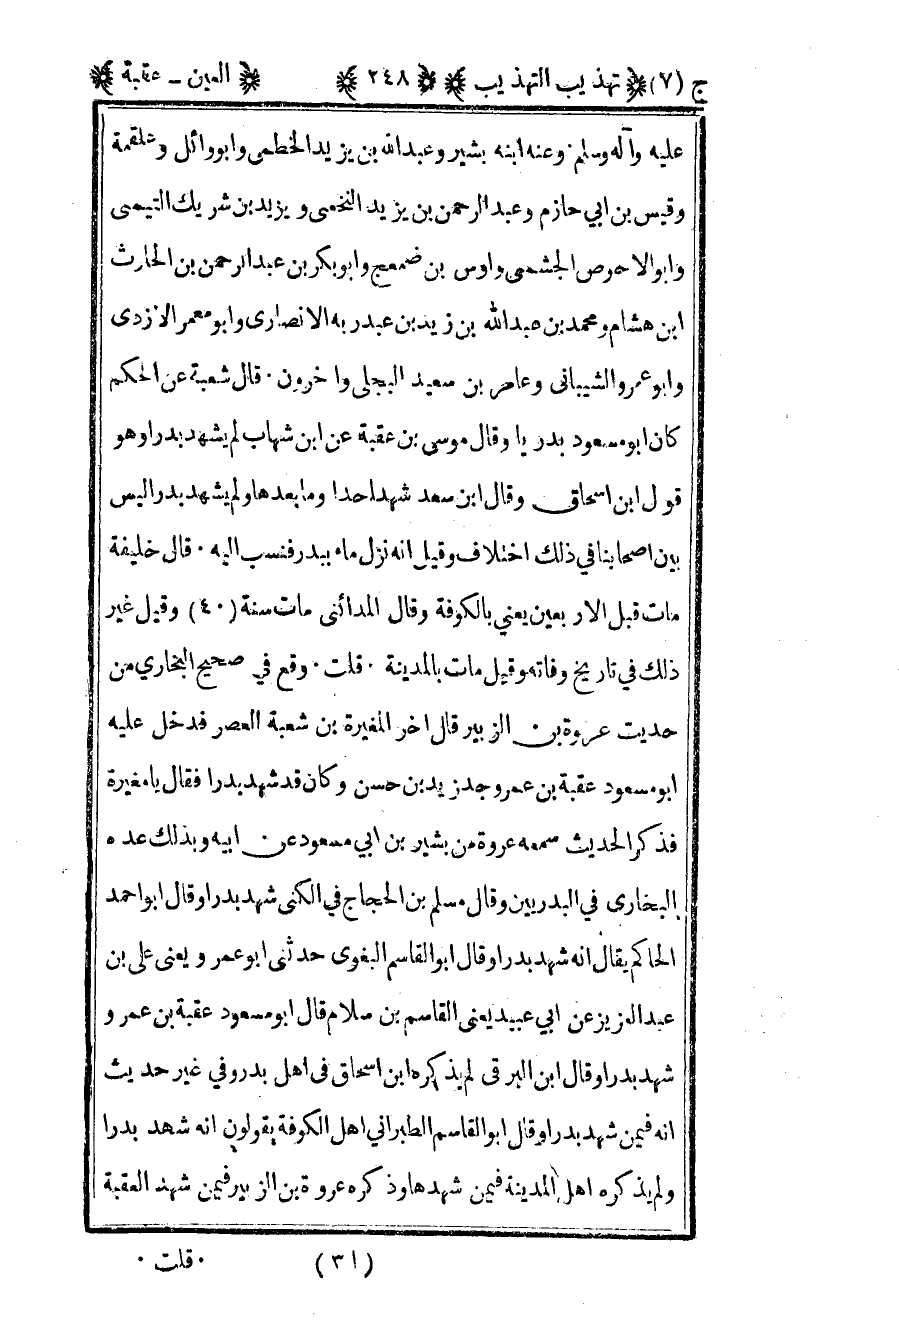 ج (٧) تهذيب التهذيب ٢٤٨ العين - عقبة
عليه وآله وسلم. وعنه ابنه بشير وعبدالله بن يزيد الخطمى وابو وائل وعلقمة
وقيس بن ابي حازم وعبد الرحمن بن يزيد النخعى ويزيد بن شريك التيمى
وابو الاحوص الجشمى واوس بن ضمعج وابو بكر بن عبد الرحمن بن الحارث
ابن هشام ومحمد بن عبدالله بن زيد بن عبد ربه الانصارى وابو معمر الازدى
وابو عمرو الشيبانى وعامر بن سعيد البجلى وآخرون. قال شعبة عن الحكم
كان ابو مسعود بدريا وقال موسى بن عقبة عن ابن شهاب لم يشهد بدرا وهو
قول ابن اسحاق وقال ابن سعد شهد احدا وما بعدها ولم يشهد بدرا ليس
بين اصحابنا في ذلك اختلاف وقيل انه نزل ماء ببدر فنسب اليه. قال خليفة
مات قبل الاربعين يعني بالكوفة وقال المدائنى مات سنة (٤٠) وقيل غير
ذلك في تاريخ وفاته وقيل مات بالمدينة. قلت. وقع في صحيح البخاري من
حديث عروة بن الزبير قال اخر المغيرة بن شعبة العصر فدخل عليه
ابو مسعود عقبة بن عمرو جد زيد بن حسن وكان قد شهد بدرا فقال يا مغيرة
فذكر الحديث سمعه عروة من بشير بن ابي مسعود عن ابيه وبذلك عده
البخارى في البدريين وقال مسلم بن الحجاج في الكنى شهد بدرا وقال ابو احمد
الحاكم يقال انه شهد بدرا وقال ابو القاسم البغوى حدثنى ابو عمرو يعنى على بن
عبد العزيز عن ابي عبيد يعنى القاسم بن سلام قال ابو مسعود عقبة بن عمرو
شهد بدرا وقال ابن البرقى لم يذكره ابن اسحاق فى اهل بدر وفي غير حديث
انه فيمن شهد بدرا وقال ابو القاسم الطبراني اهل الكوفة يقولون انه شهد بدرا
ولم يذكره اهل المدينة فيمن شهدها وذكره عروة بن الزبير فيمن شهد العقبة
(٣١) . قلت .